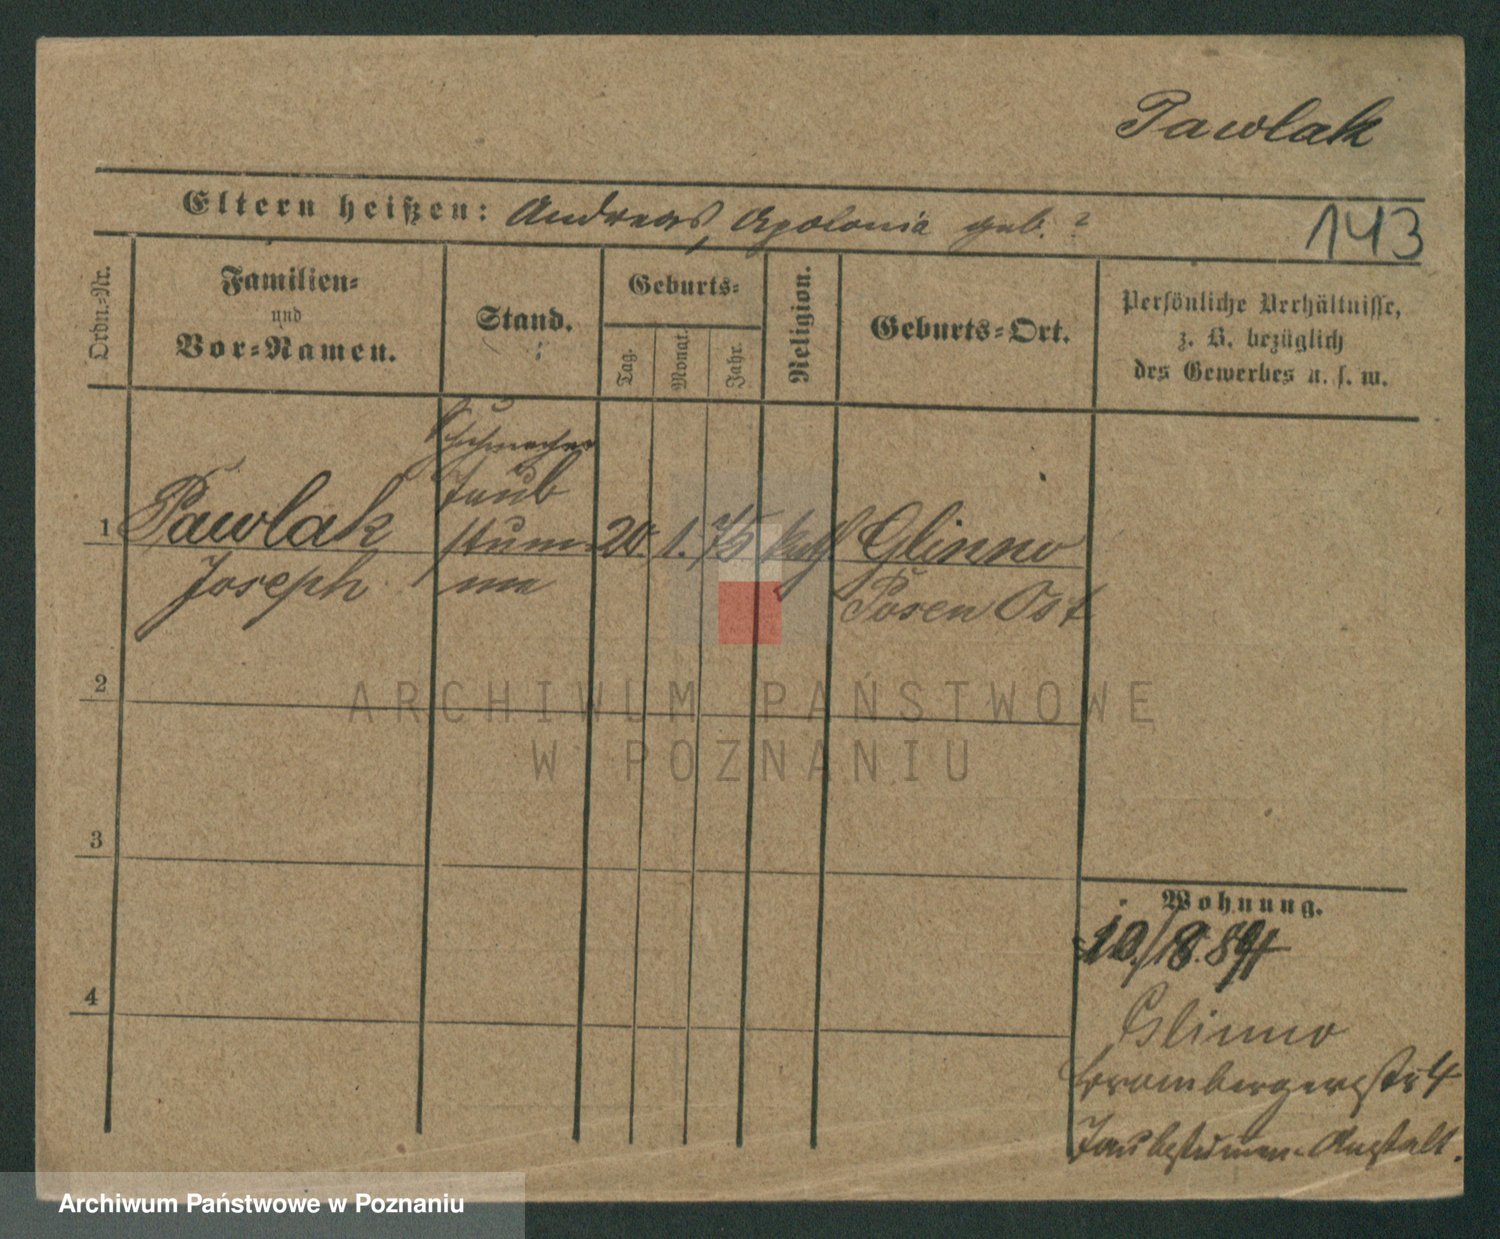 Pawlak
Eltern heißen: Andreas, Apolonia geb. ?
143
Ordn.-Nr.
Familien-
und
Vor-Namen.
Stand.
Geburts-
Tag.
Monat.
Jahr.
Religion.
Geburts-Ort.
Persönliche Verhältnisse,
z. B. bezüglich
des Gewerbes u. s. w.
1
Pawlak
Joseph
Schuhmacher
taub
stum-
me
20.
1.
75
kath
Glinno
Posen Ost
2
3
4
Wohnung.
10./8.
Glinno
Brombergerstr 4
Taubstummen-Anstalt.
ARCHIWUM PAŃSTWOWE
W POZNANIU
Archiwum Państwowe w Poznaniu